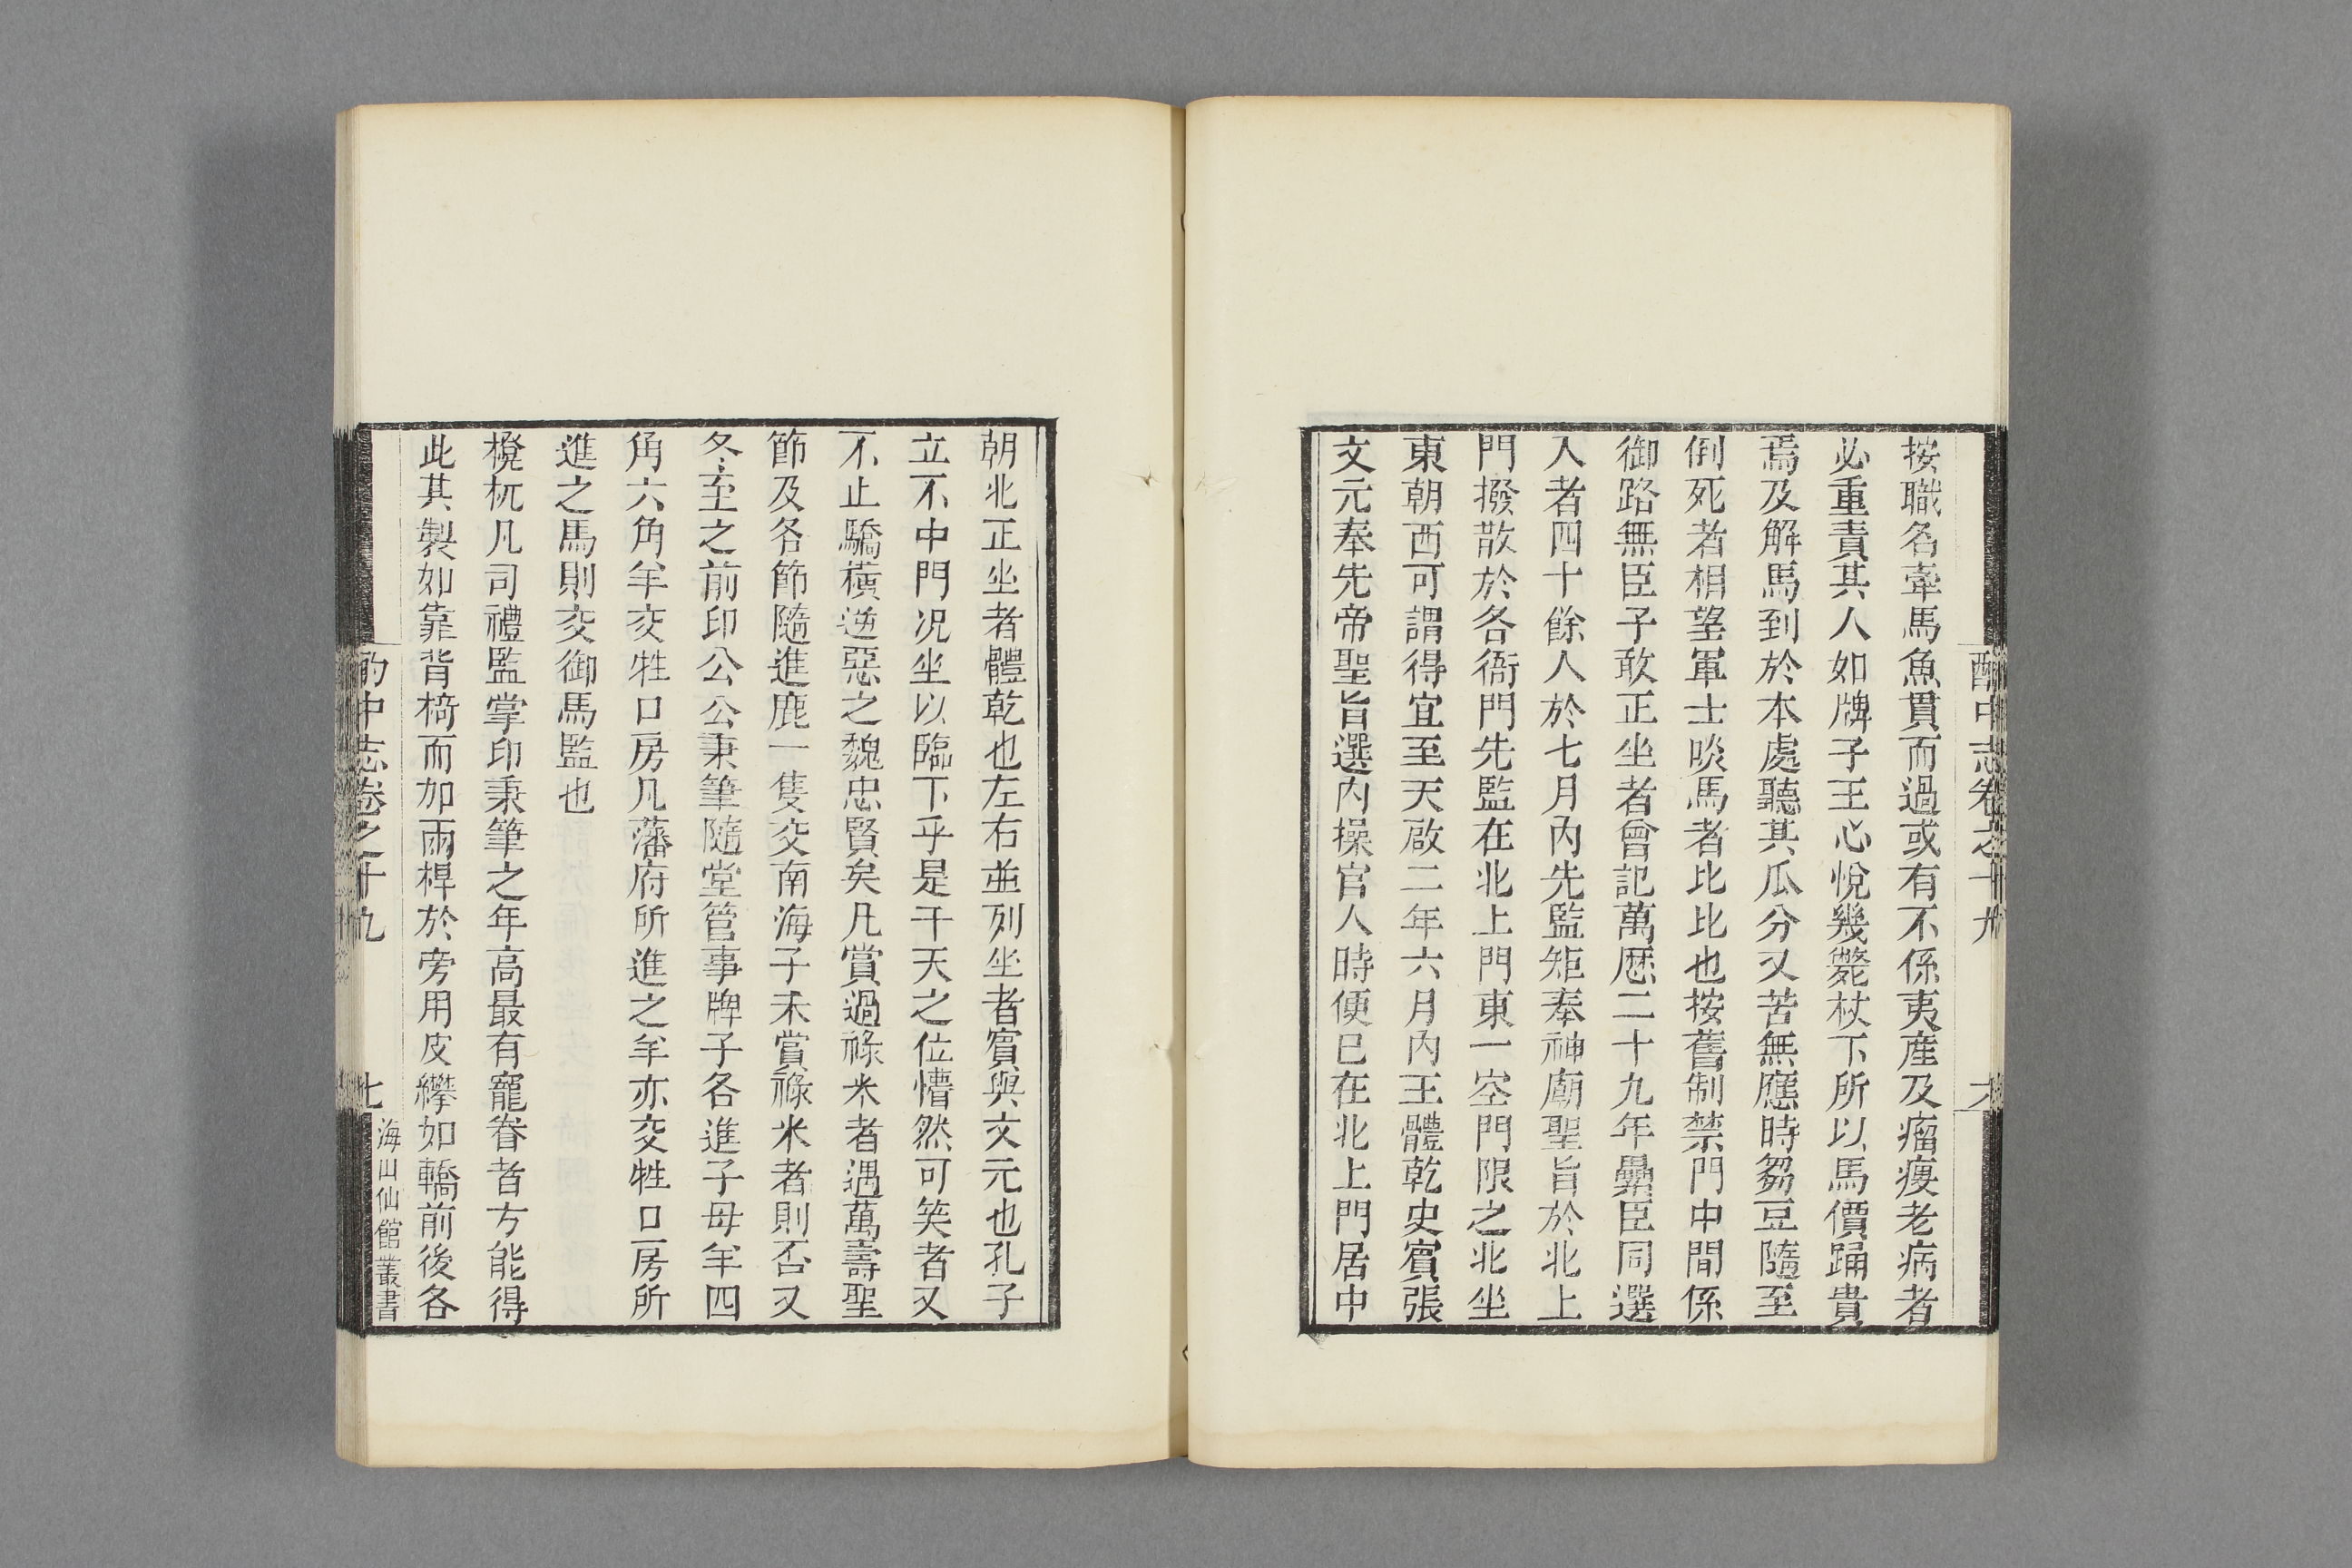 酌中志卷之十九
六
按職名牽馬魚貫而過或有不係夷產及瘤瘦老病者
必重責其人如牌子王心悅幾斃杖下所以馬價踊貴
焉及解馬到於本處聽其瓜分又苦無應時芻豆隨至
倒死者相望軍士啖馬者比比也按舊制禁門中間係
御路無臣子敢正坐者曾記萬厯二十九年㬪臣同選
入者四十餘人於七月內先監矩奉神廟聖旨於北上
門撥散於各衙門先監在北上門東一空門限之北坐
東朝西可謂得宜至天啟二年六月內王體乾史賓張
文元奉先帝聖旨選內操官人時便已在北上門居中
朝北正坐者體乾也左右並列坐者賓與文元也孔子
立不中門況坐以臨下乎是干天之位懵然可笑者又
不止驕橫逆惡之魏忠賢矣凡賞過祿米者遇萬壽聖
節及各節隨進鹿一隻交南海子未賞祿米者則否又
冬至之前印公公秉筆隨堂管事牌子各進子母羊四
角六角羊交牲口房凡藩府所進之羊亦交牲口房所
進之馬則交御馬監也
櫈杌凡司禮監掌印秉筆之年高最有寵眷者方能得
此其製如靠背椅而加兩桿於旁用皮攀如轎前後各
酌中志卷之十九
七
海山仙館叢書